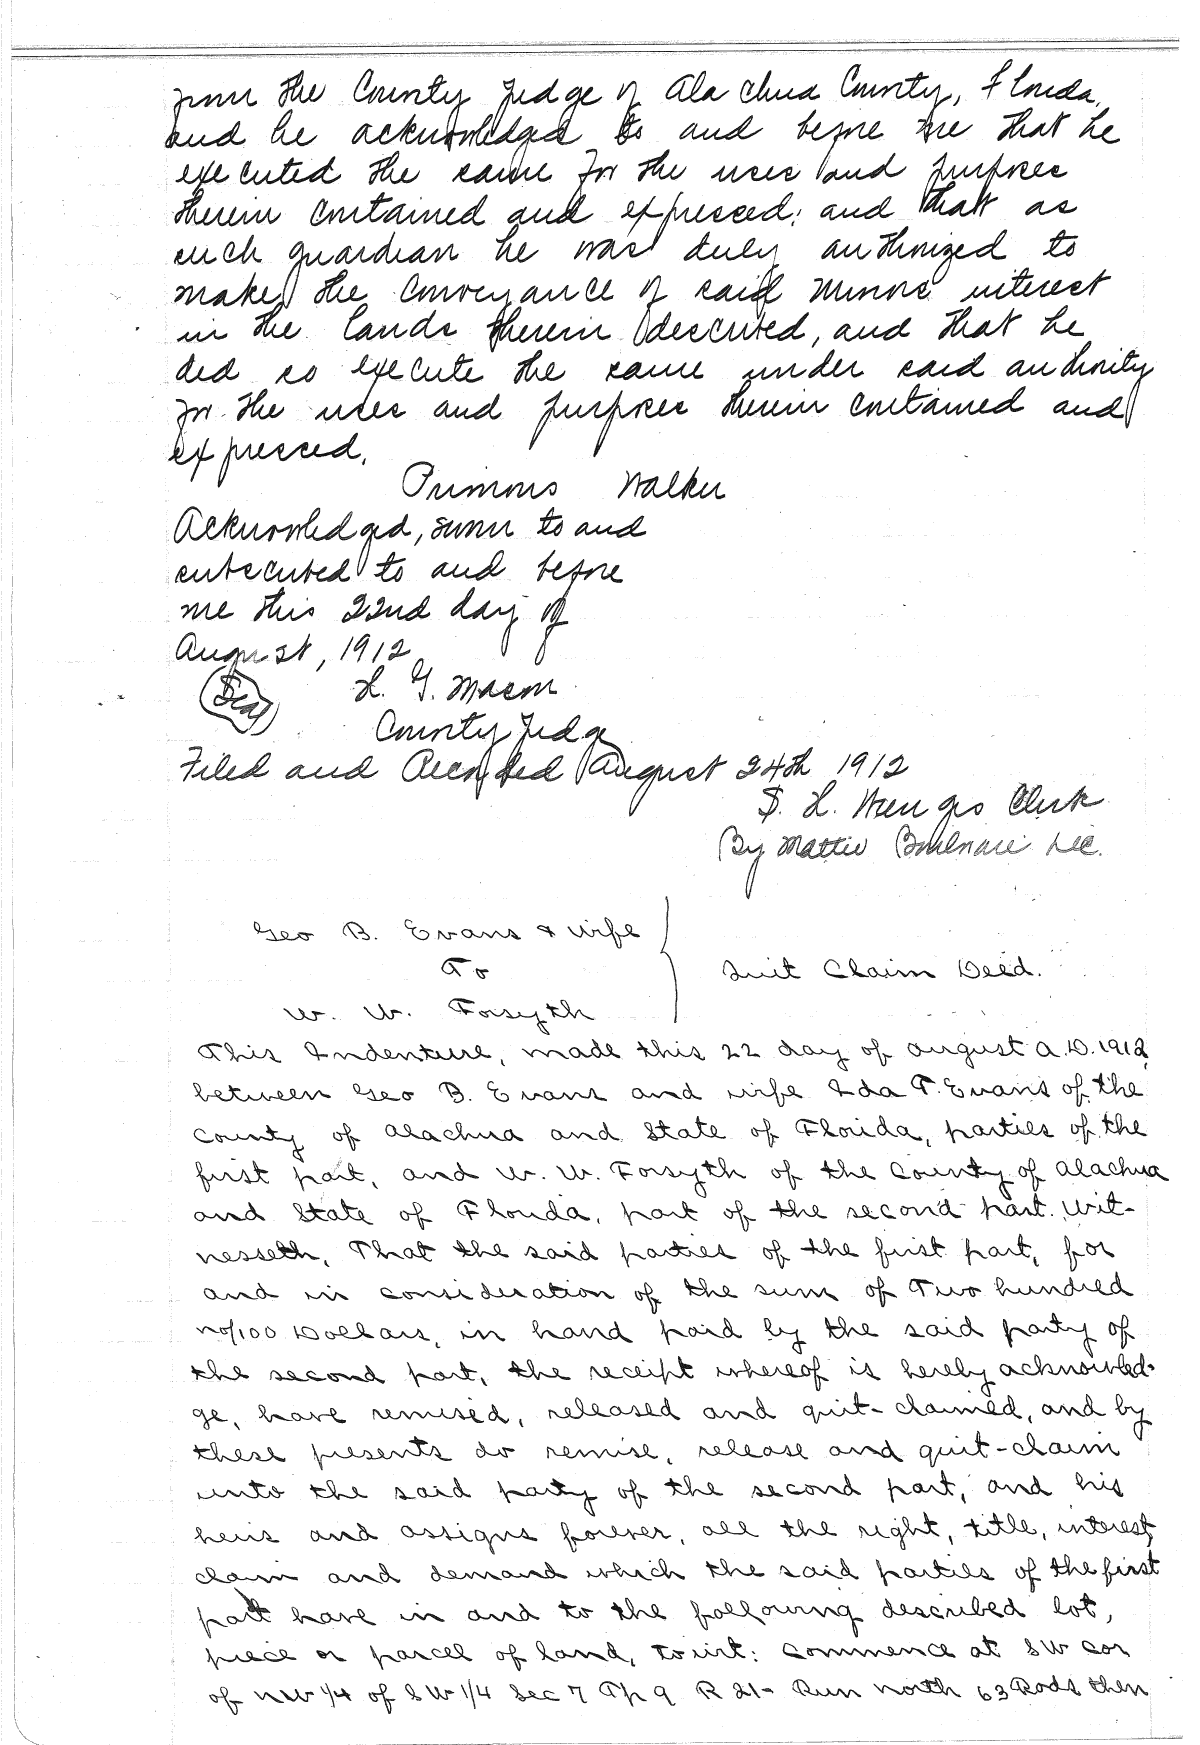 from the County Judge of Alachua County, Florida,
and he acknowledged to and before me that he
executed the same for the uses and purposes
therein contained and expressed; and that as
such guardian he was duly authorized to
make the conveyance of said minors interest
in the lands therein described, and that he
did so execute the same under said authority
for the uses and purposes therein contained and
expressed.
Primous Walker
Acknowledged, sworn to and
subscribed to and before
me this 22nd day of
August, 1912
Seal H. G. Mason
County Judge
Filed and Recorded August 24th 1912
S. H. Wienges Clerk
By Mattie D.C.
Geo B. Evans & wife
To
Quit Claim Deed.
W. W. Forsyth
This Indenture, made this 22 day of August A.D. 1912,
between Geo B. Evans and wife Ida F. Evans of the
County of Alachua and State of Florida, parties of the
first part, and W. W. Forsyth of the County of Alachua
and State of Florida, part of the second part. Wit-
nesseth, That the said parties of the first part, for
and in consideration of the sum of Two hundred
no/100 Dollars, in hand paid by the said party of
the second part, the receipt whereof is hereby acknowled-
ge, have remised, released and quit-claimed, and by
these presents do remise, release and quit-claim
unto the said party of the second part, and his
heirs and assigns forever, all the right, title, interest,
claim and demand which the said parties of the first
part have in and to the following described lot,
piece or parcel of land, towit: Commence at SW cor
of NW 1/4 of SW 1/4 Sec 7 Tp 9 R 21- Run north 63 Rods then